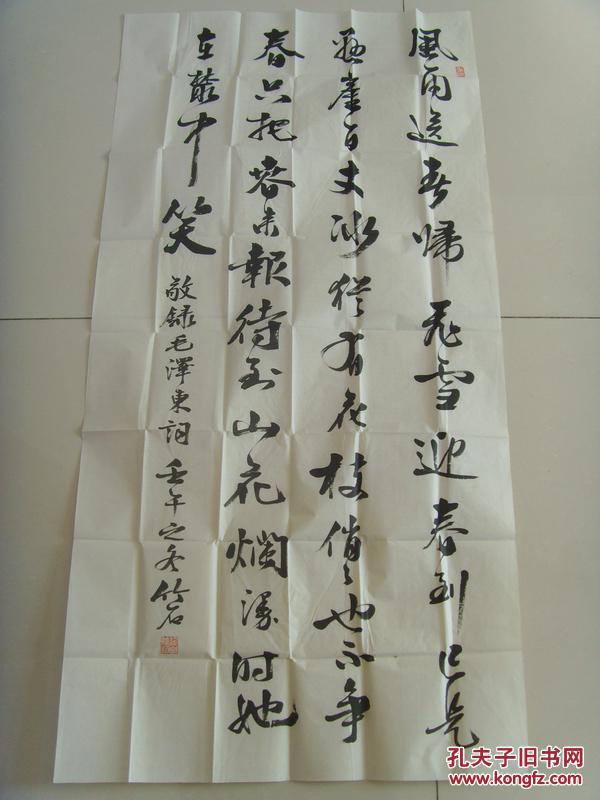 風雨送春歸飛雪迎春到已是
懸崖百丈冰猶有花枝俏〻也不争
春只把春来報待到山花爛漫时她
在叢中笑
敬録毛澤東詞 壬午之冬 竹石
孔夫子旧书网
www.kongfz.com